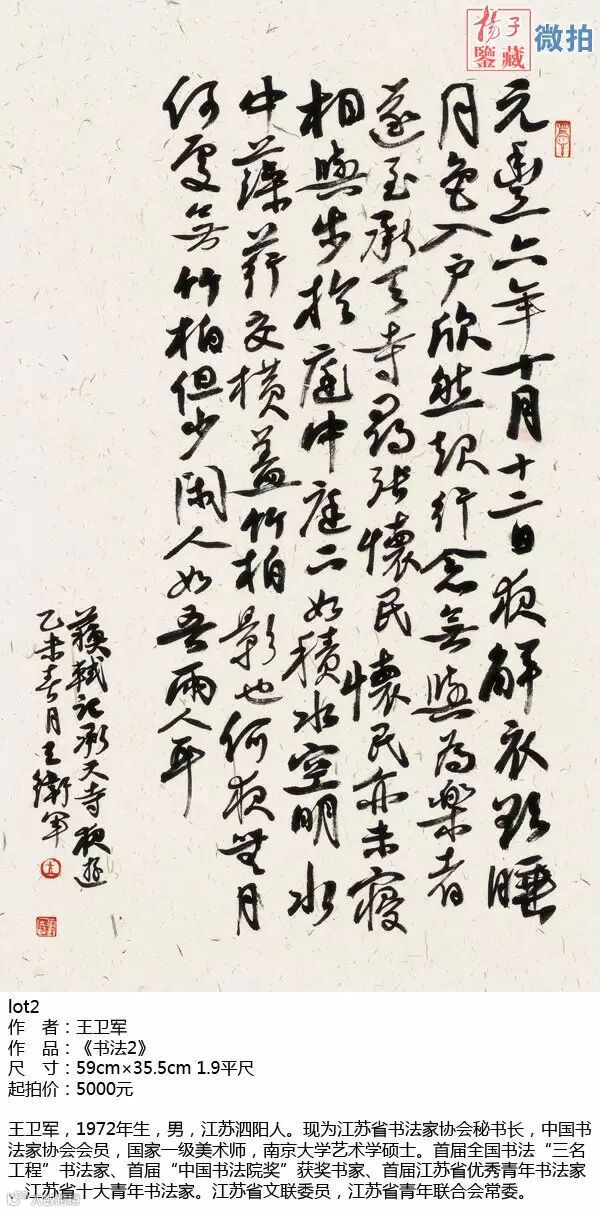 揚子
鑒藏
微拍
元豐六年十月十二日夜解衣欲睡
月色入户欣然起行念無與為樂者
遂至承天寺尋張懷民懷民亦未寢
相與步於庭中庭下如積水空明水
中藻荇交橫蓋竹柏影也何夜無月
何處無竹柏但少閑人如吾兩人耳
蘇軾記承天寺夜遊
乙未春月王衛軍
lot2
作 者：王卫军
作 品：《书法2》
尺 寸：59cm×35.5cm 1.9平尺
起拍价：5000元
王卫军，1972年生，男，江苏泗阳人。现为江苏省书法家协会秘书长，中国书
法家协会会员，国家一级美术师，南京大学艺术学硕士。首届全国书法“三名
工程”书法家、首届“中国书法院奖”获奖书家、首届江苏省优秀青年书法家
、江苏省十大青年书法家。江苏省文联委员，江苏省青年联合会常委。